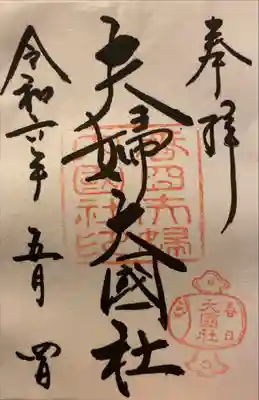 奉拝
夫婦大國社
春日
大國社
令和六年
五月
四日